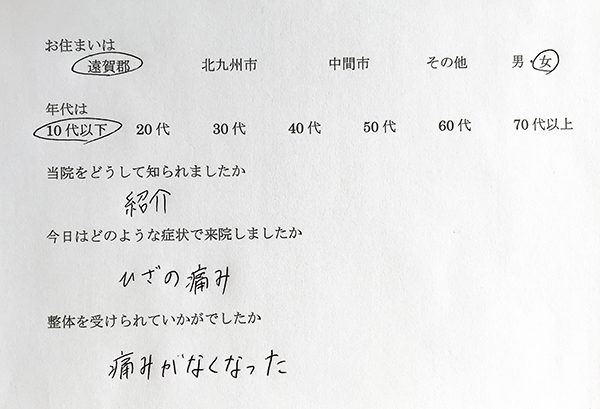 お住まいは
遠賀郡 北九州市 中間市 その他 男・女
年代は
10代以下 20代 30代 40代 50代 60代 70代以上
当院をどうして知られましたか
紹介
今日はどのような症状で来院しましたか
ひざの痛み
整体を受けられていかがでしたか
痛みがなくなった